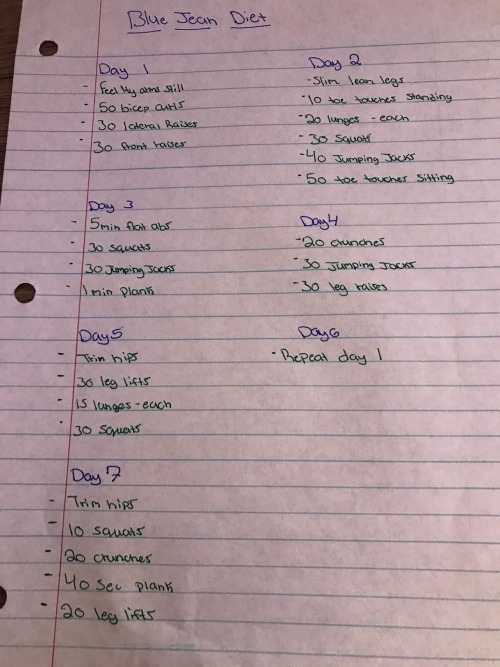 Blue Jean Diet
Day 1
- Feel My arms still
- 50 bicep curls
- 30 lateral Raises
- 30 front raises
Day 2
- Slim lean legs
- 10 toe touches standing
- 20 lunges - each
- 30 squats
- 40 Jumping Jacks
- 50 toe touches sitting
Day 3
- 5min flat abs
- 30 squats
- 30 Jumping Jacks
- 1 min plank
Day 4
- 20 crunches
- 30 Jumping Jacks
- 30 leg raises
Day 5
- Trim hips
- 30 leg lifts
- 15 lunges - each
- 30 squats
Day 6
- Repeat day 1
Day 7
- Trim hips
- 10 squats
- 20 crunches
- 40 sec plank
- 20 leg lifts